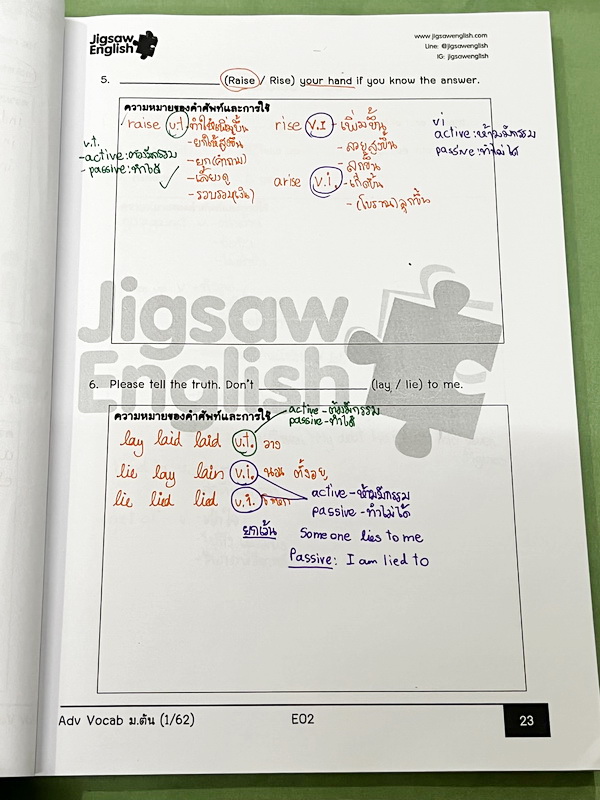 Jigsaw
English
www.jigsawenglish.com
Line: @jigsawenglish
IG: jigsawenglish
5. (Raise / Rise) your hand if you know the answer.
ความหมายของคำศัพท์และการใช้
raise v.t ทำให้เพิ่มขึ้น
-ยกให้สูงขึ้น
-ยก(คำถาม)
-เลี้ยงดู
-รวบรวม(เงิน)
v.t.
-active:ต้องมีกรรม
-passive:ทำได้
rise v.i -เพิ่มขึ้น
-ลอยสูงขึ้น
-ลุกขึ้น
arise v.i. -เกิดขึ้น
-(โบราณ)ลุกขึ้น
vi
active:ห้ามมีกรรม
passive:ทำไม่ได้
Jigsaw
English
6. Please tell the truth. Don't (lay / lie) to me.
ความหมายของคำศัพท์และการใช้
active-ต้องมีกรรม
passive-ทำได้
lay laid laid v.t. วาง
lie lay lain v.i. นอน ตั้งอยู่
lie lied lied v.i. โกหก
active-ห้ามมีกรรม
passive-ทำไม่ได้
ยกเว้น Someone lies to me
Passive: I am lied to
Adv Vocab ม.ต้น (1/62) E02 23